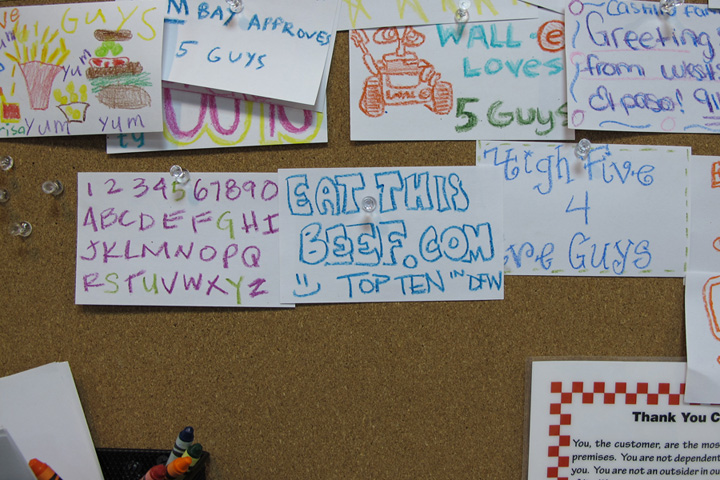 GUYS
Yum
yum
Yum
yum
M BAY APPROVES
5 GUYS
WALL-e
LOVES
5 GUYS
Greeting
from west
el paso! 911
1 2 3 4 5 6 7 8 9 0
ABCDEFGHI
JKLMNOPQ
RSTUVWXYZ
EAT THIS
BEEF.COM
TOP TEN IN DFW
High Five
4
ve Guys
Thank You C
You, the customer, are the mos
premises. You are not dependent
you. You are not an outsider in ou